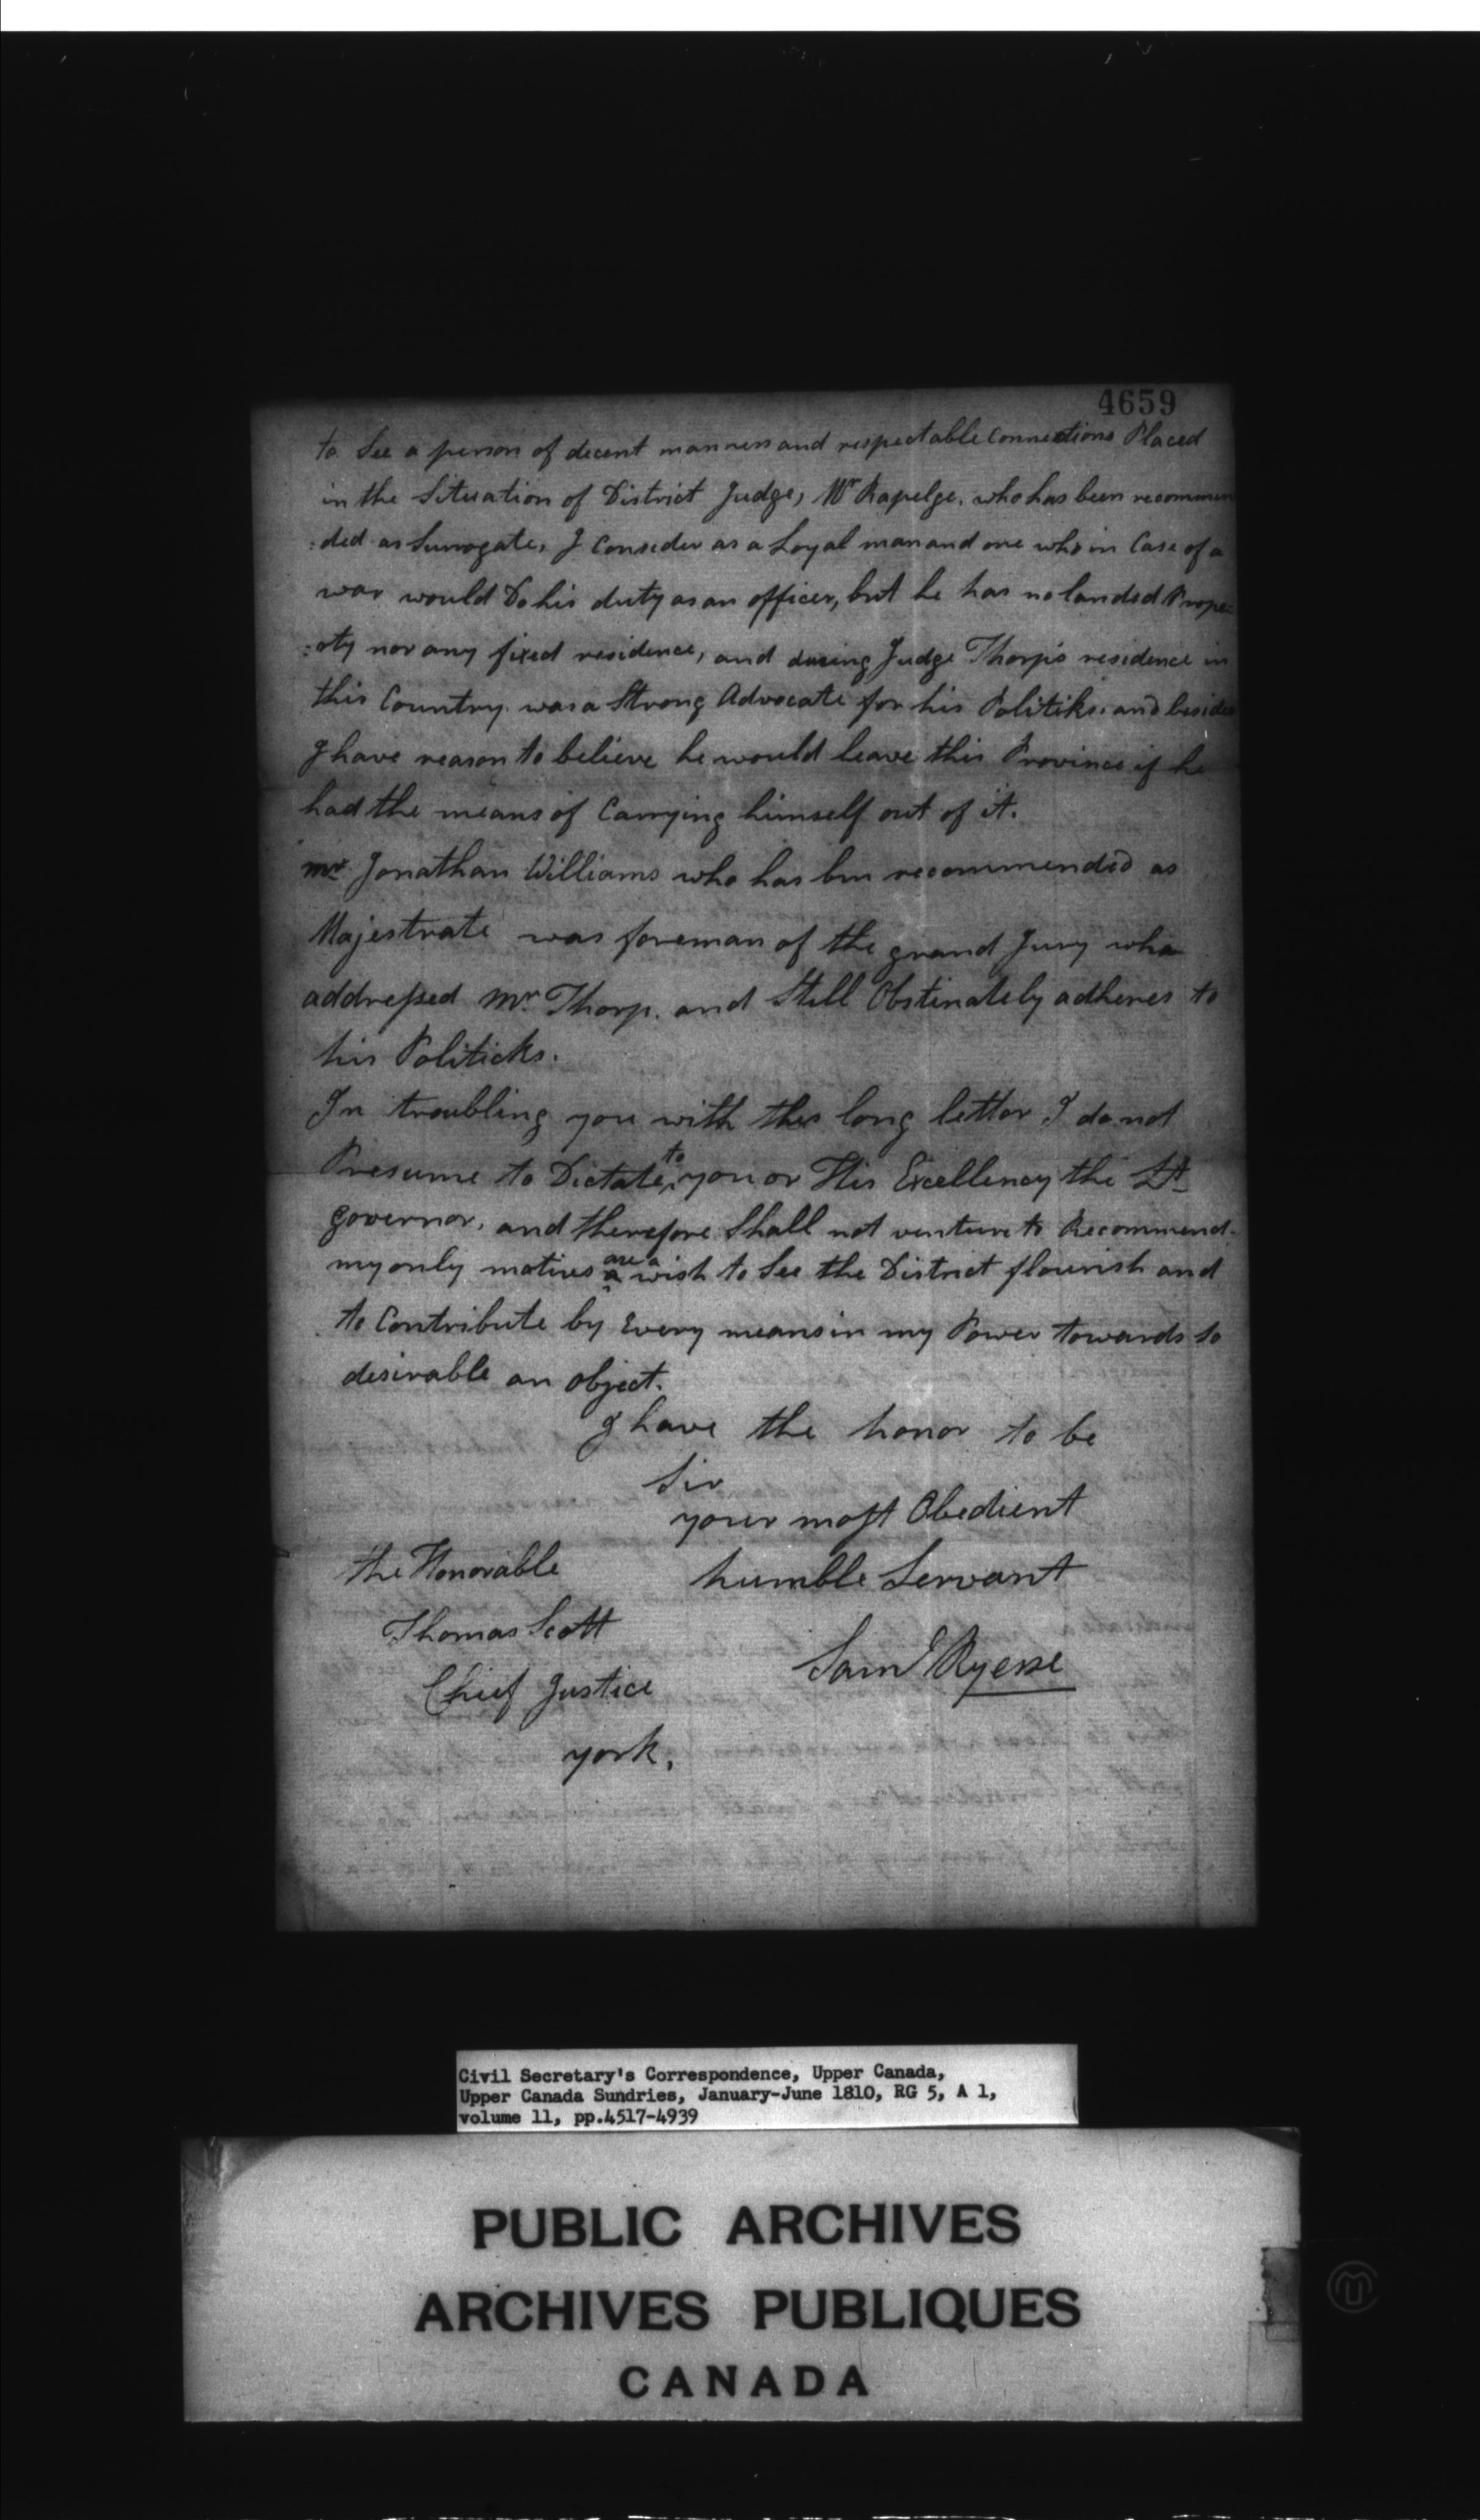 4659
to See a person of decent manners and respectable Connections Placed
in the Situation of District Judge, Mr Rapelge. who has been recommen
:ded as Surrogate, I Consider as a Loyal man and one who in Case of a
war would Do his duty as an officer, but he has no landed Prope=
:rty nor any fixed residence, and during Judge Thorps residence in
this Country was a Strong Advocate for his Politiks. and besides
I have reason to believe he would leave this Province if he
had the means of Carrying himself out of it.
Mr Jonathan Williams who has bin recommended as
Majestrate was foreman of the grand Jury who
addressed Mr Thorp. and Still Obstinately adheres to
his Politicks.
In troubling you with this long letter I do not
Presume to Dictate to you or His Excellency the Lt
governor, and therefore Shall not venture to Recommend.
my only motives are a wish to See the District flourish and
to Contribute by Every means in my Power towards so
desirable an object.
I have the honor to be
Sir
your most Obedient
humble Servant
Saml Ryerse
the Honorable
Thomas Scott
Chief Justice
york.
Civil Secretary's Correspondence, Upper Canada,
Upper Canada Sundries, January-June 1810, RG 5, A 1,
volume 11, pp.4517-4939
PUBLIC ARCHIVES
ARCHIVES PUBLIQUES
CANADA